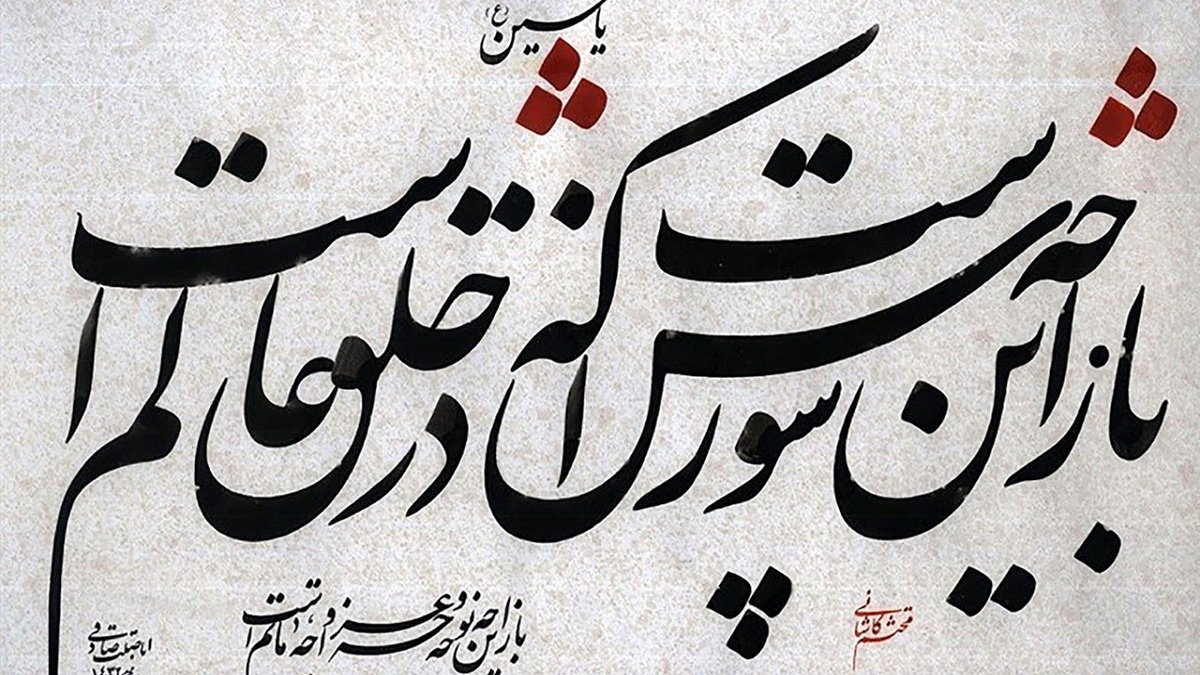 یا حسین (ع)
باز این چه شورش است که در خلق عالم است
محتشم کاشانی
باز این چه نوحه و چه عزا و چه ماتم است
اباصلت صادقی